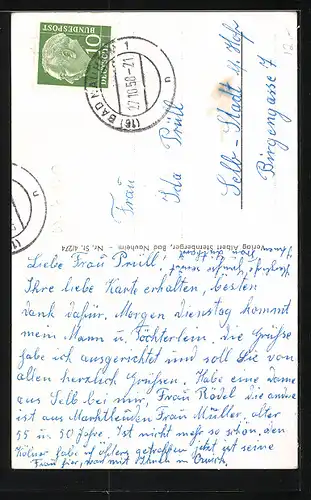 DEUTSCHE
BUNDESPOST
10
(16) BAD
27.10.58-21
Frau
Ida Prüll
Selb - Stadt b. Hof
Birgengasse 7
Verlag Albert Sternberger, Bad Nauheim - Nr. St. 4/274
Liebe Frau Prüll!
Ihre liebe Karte erhalten, besten
Dank dafür. Morgen Dienstag kommt
mein Mann u. Töchterlein. Die Grüße
habe ich ausgerichtet und soll Sie von
allen herzlich Grüßen. Habe eine Dame
aus Selb bei mir, Frau Rödel die andre
ist aus Marktleuthen Frau Müller, alter
55 u 50 Jahre. Ist nicht mehr so schön, den
Kölner habe ich öfters getroffen jetzt ist seine
Frau hier, war mit Ihnen in